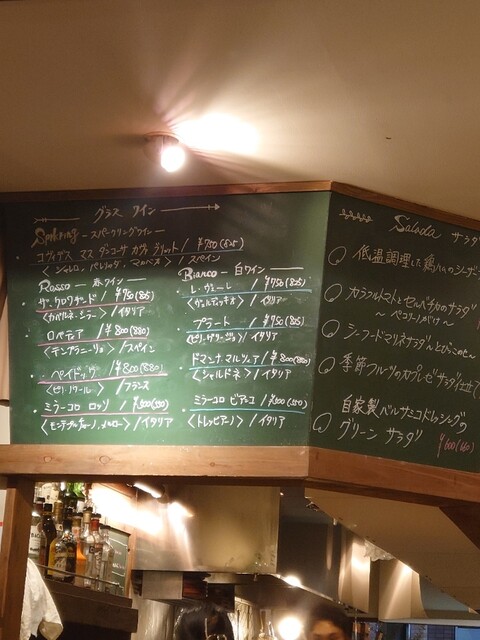 グラス ワイン
Spakring - スパークリングワイン -
コヴィデス マス ダッコーサ カヴァ ブリュット / ¥750(825)
〈シャルロ、パレリャダ、マカベオ〉 / スペイン
Rosso - 赤ワイン
/ ¥750(825)
〈カベルネ・シラー〉 / イタリア
ロペテア / ¥800(880)
〈テンプラニーリョ〉 / スペイン
ペイドッヴ / ¥800(880)
/ フランス
ミラーコロ ロッソ / ¥500(550)
/ イタリア
Bianco - 白ワイン
レ・ヴェーレ / ¥750(825)
〈ヴェルディッキオ〉 / イタリア
プラート / ¥750(825)
/ イタリア
ドマンナ マルツィア / ¥800(880)
〈シャルドネ〉 / イタリア
ミラーコロ ビアンコ / ¥500(550)
〈トレッビアーノ〉 / イタリア
Salada サラダ
低温調理した鶏ハムのシーザー
カラフルトマトとセルバチカのサラダ
〜 ペコリーノがけ 〜
シーフードマリネサラダ
季節フルーツのカプレーゼ サラダ仕立て
自家製バルサミコドレッシングの
グリーン サラダ ¥600(660)